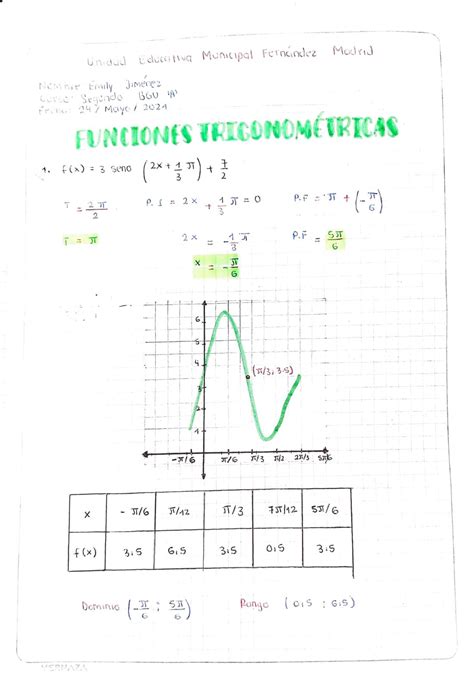 Unidad Educativa Municipal Fernández Madrid
Nombre: Emily Jiménez
Curso: Segundo BGU "A"
Fecha: 24 / Mayo / 2021
FUNCIONES TRIGONOMÉTRICAS
1. f(x) = 3 seno (2x + 1/3 π) + 7/2
T = 2π/2 P.I = 2x + 1/3 π = 0 P.F = π + (-π/6)
T = π 2x = -1/3 π P.F = 5π/6
x = -π/6
6
5
4
3
2
1
(π/3, 3.5)
-π/6 π/6 π/3 π/2 2π/3 5π/6
x -π/6 π/12 π/3 7π/12 5π/6
f(x) 3,5 6,5 3,5 0,5 3,5
Dominio (-π/6 ; 5π/6) Rango (0,5 ; 6,5)